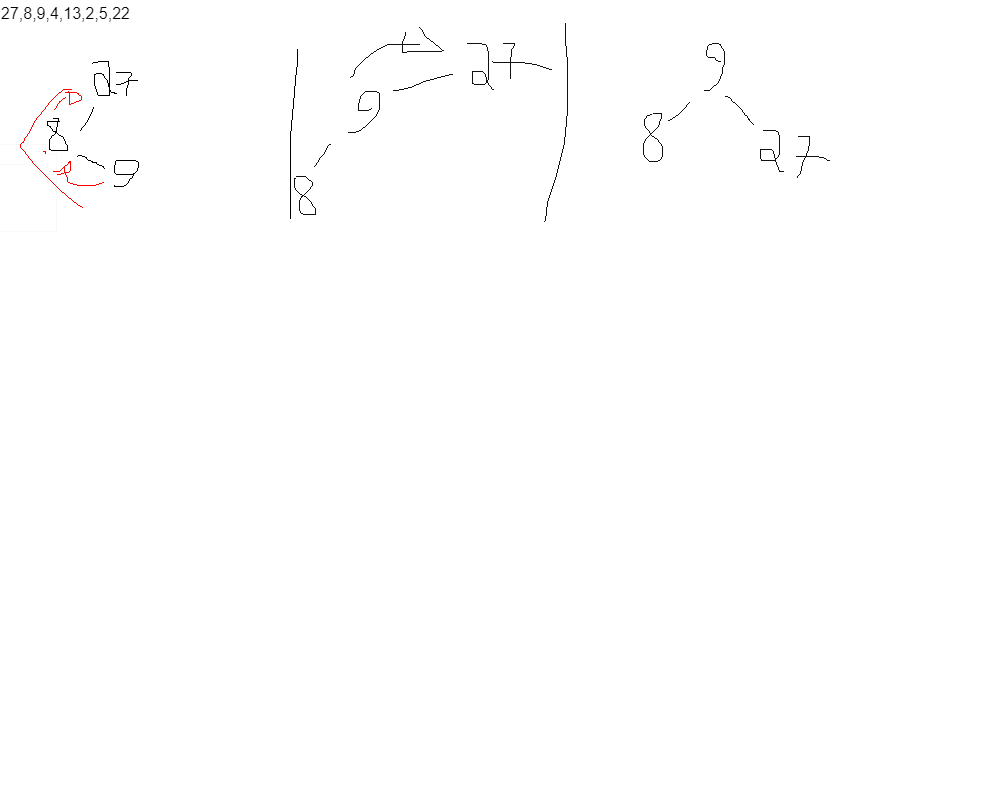 27,8,9,4,13,2,5,22
27
8
9
27
9
8
9
8
27